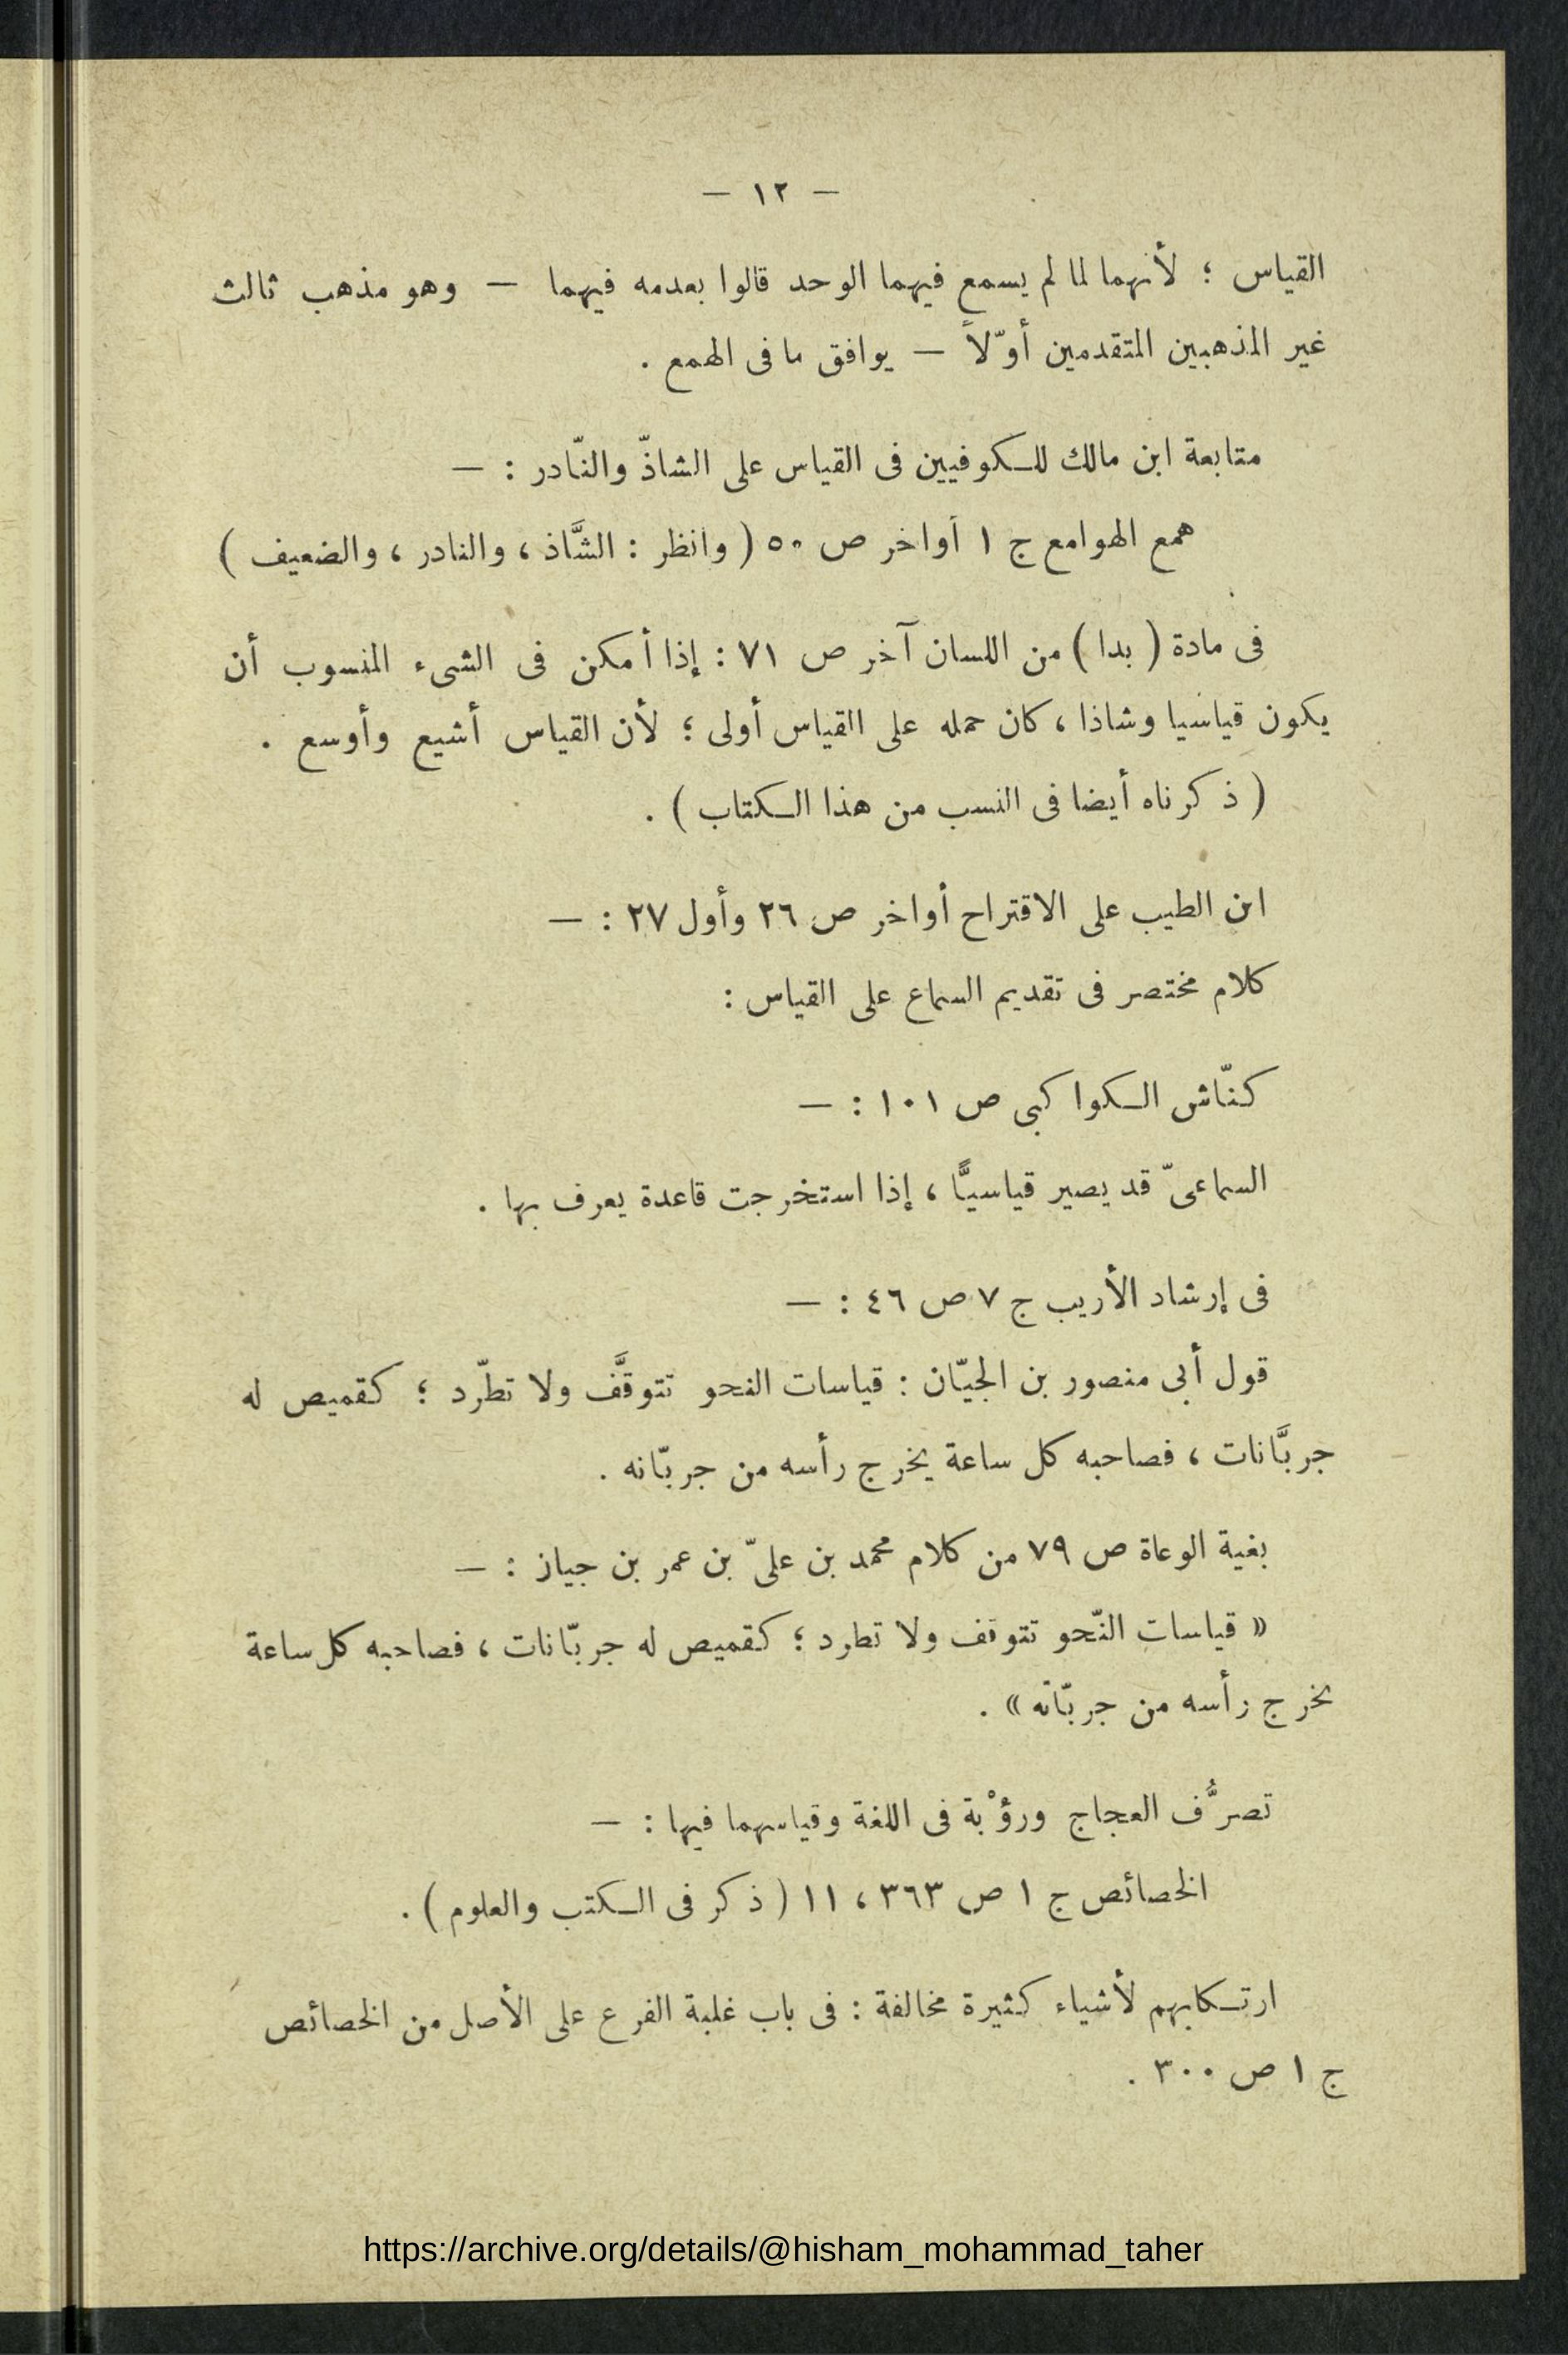 — ١٢ —
القياس ؛ لأنهما لما لم يسمع فيهما الوحد قالوا بعدمه فيهما — وهو مذهب ثالث
غير المذهبين المتقدمين أوّلاً — يوافق ما فى الهمع .
متابعة ابن مالك للكوفيين فى القياس على الشاذّ والنّادر : —
همع الهوامع ج ١ أواخر ص ٥٠ ( وانظر : الشَّاذ ، والنادر ، والضعيف )
فى مادة ( بدا ) من اللسان آخر ص ٧١ : إذا أمكن فى الشىء المنسوب أن
يكون قياسيا وشاذا ، كان حمله على القياس أولى ؛ لأن القياس أشيع وأوسع .
( ذكرناه أيضا فى النسب من هذا الكتاب ) .
ابن الطيب على الاقتراح أواخر ص ٢٦ وأول ٢٧ : —
كلام مختصر فى تقديم السماع على القياس :
كنّاش الكواكبى ص ١٠١ : —
السماعىّ قد يصير قياسيًّا ، إذا استخرجت قاعدة يعرف بها .
فى إرشاد الأريب ج ٧ ص ٤٦ : —
قول أبى منصور بن الجيّان : قياسات النحو تتوقَّف ولا تطّرد ؛ كقميص له
جربَّانات ، فصاحبه كل ساعة يخرج رأسه من جربّانه .
بغية الوعاة ص ٧٩ من كلام محمد بن علىّ بن عمر بن جياز : —
« قياسات النّحو تتوقف ولا تطرد ؛ كقميص له جربّانات ، فصاحبه كل ساعة
يخرج رأسه من جربّانه » .
تصرُّف العجاج ورؤْبة فى اللغة وقياسهما فيها : —
الخصائص ج ١ ص ٣٦٣ ، ١١ ( ذكر فى الكتب والعلوم ) .
ارتكابهم لأشياء كثيرة مخالفة : فى باب غلبة الفرع على الأصل من الخصائص
ج ١ ص ٣٠٠ .
https://archive.org/details/@hisham_mohammad_taher